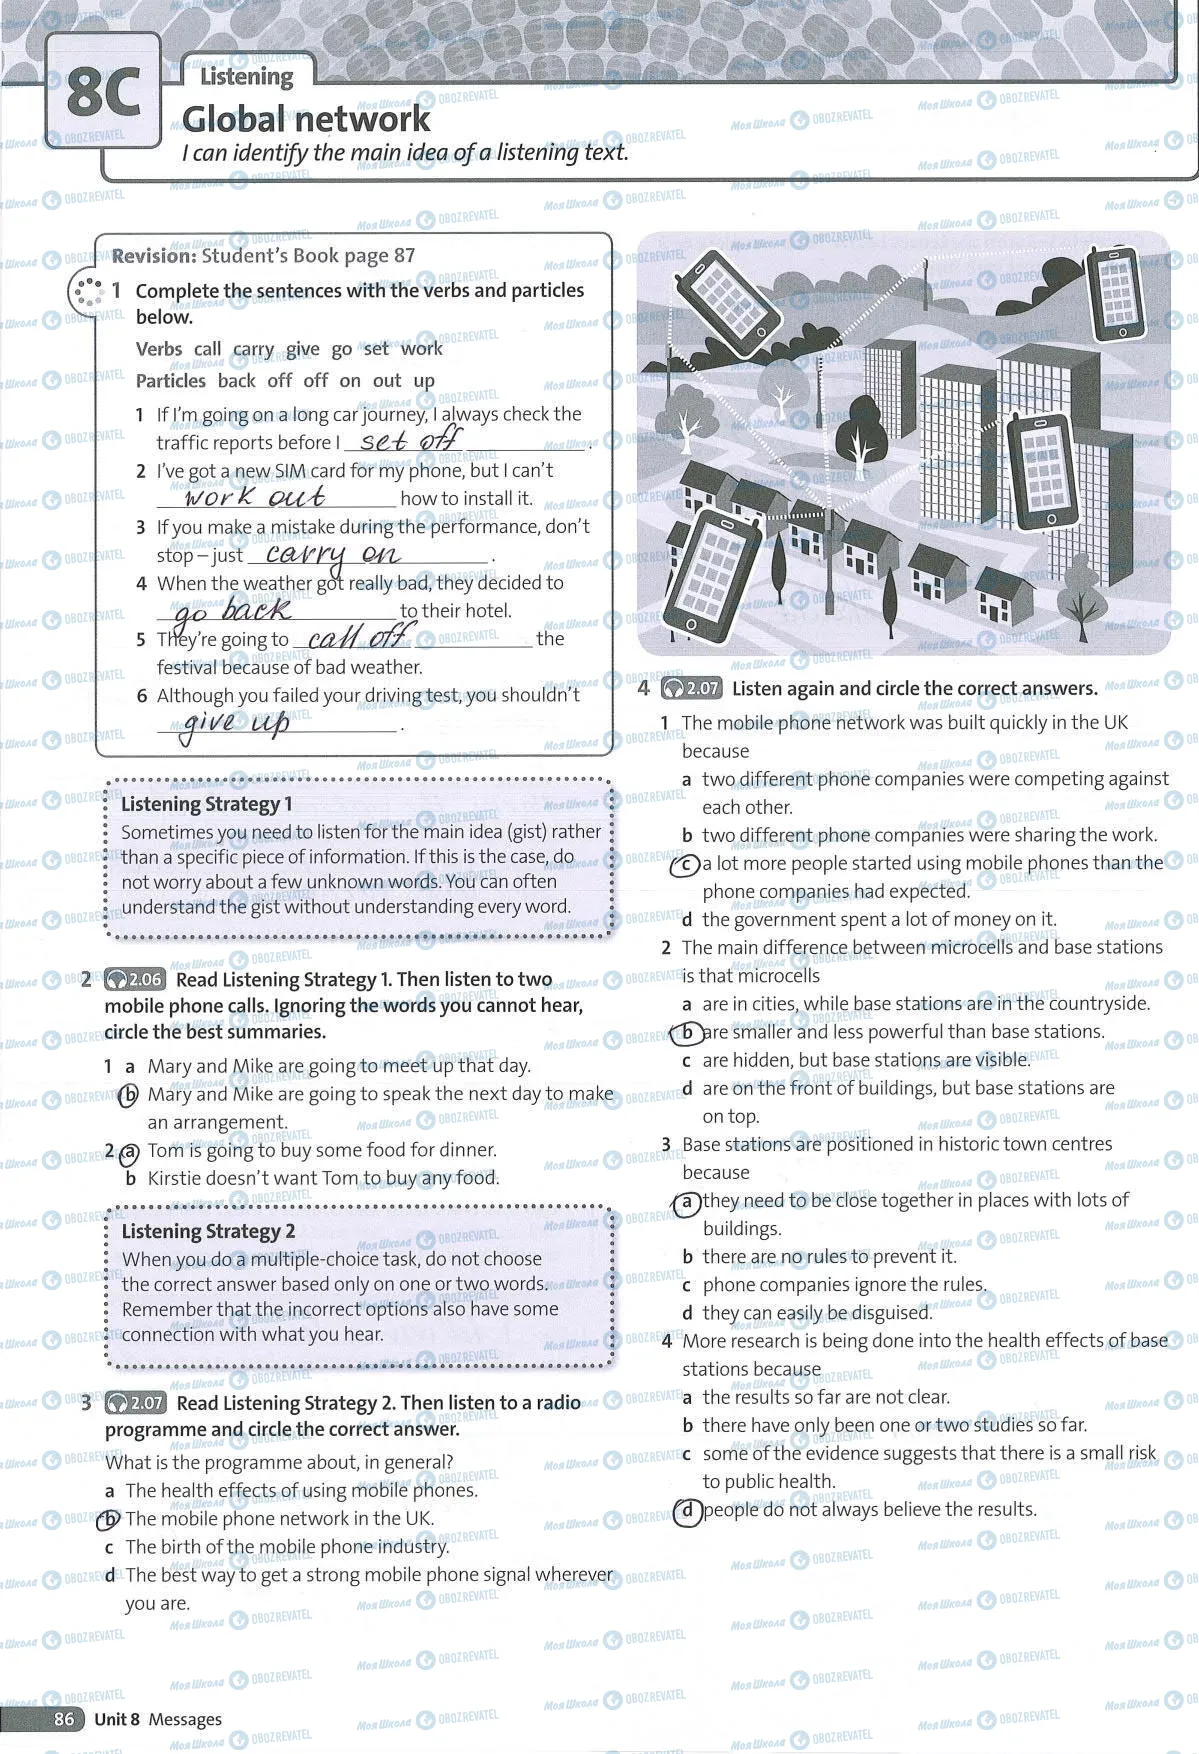 8C
Listening
Global network
I can identify the main idea of a listening text.
Revision: Student's Book page 87
1 Complete the sentences with the verbs and particles
below.
Verbs call carry give go set work
Particles back off off on out up
1 If I'm going on a long car journey, I always check the
traffic reports before I set off .
2 I've got a new SIM card for my phone, but I can't
work out how to install it.
3 If you make a mistake during the performance, don't
stop – just carry on .
4 When the weather got really bad, they decided to
go back to their hotel.
5 They're going to call off the
festival because of bad weather.
6 Although you failed your driving test, you shouldn't
give up .
Listening Strategy 1
Sometimes you need to listen for the main idea (gist) rather
than a specific piece of information. If this is the case, do
not worry about a few unknown words. You can often
understand the gist without understanding every word.
2 2.06 Read Listening Strategy 1. Then listen to two
mobile phone calls. Ignoring the words you cannot hear,
circle the best summaries.
1 a Mary and Mike are going to meet up that day.
b Mary and Mike are going to speak the next day to make
an arrangement.
2 a Tom is going to buy some food for dinner.
b Kirstie doesn't want Tom to buy any food.
Listening Strategy 2
When you do a multiple-choice task, do not choose
the correct answer based only on one or two words.
Remember that the incorrect options also have some
connection with what you hear.
3 2.07 Read Listening Strategy 2. Then listen to a radio
programme and circle the correct answer.
What is the programme about, in general?
a The health effects of using mobile phones.
b The mobile phone network in the UK.
c The birth of the mobile phone industry.
d The best way to get a strong mobile phone signal wherever
you are.
4 2.07 Listen again and circle the correct answers.
1 The mobile phone network was built quickly in the UK
because
a two different phone companies were competing against
each other.
b two different phone companies were sharing the work.
c a lot more people started using mobile phones than the
phone companies had expected.
d the government spent a lot of money on it.
2 The main difference between microcells and base stations
is that microcells
a are in cities, while base stations are in the countryside.
b are smaller and less powerful than base stations.
c are hidden, but base stations are visible.
d are on the front of buildings, but base stations are
on top.
3 Base stations are positioned in historic town centres
because
a they need to be close together in places with lots of
buildings.
b there are no rules to prevent it.
c phone companies ignore the rules.
d they can easily be disguised.
4 More research is being done into the health effects of base
stations because
a the results so far are not clear.
b there have only been one or two studies so far.
c some of the evidence suggests that there is a small risk
to public health.
d people do not always believe the results.
86 Unit 8 Messages
Моя Школа OBOZREVATEL